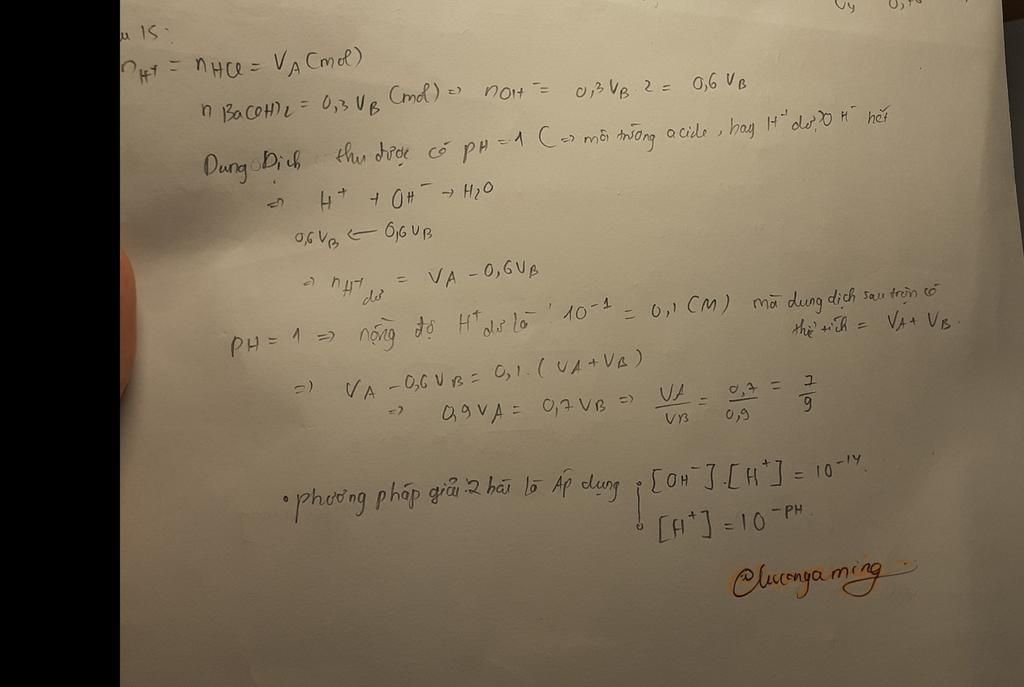 0,
15:
nH+ = nHCl = VA (mol)
n Ba(OH)2 = 0,3 VB (mol) => nOH- = 0,3 VB . 2 = 0,6 VB
Dung Dịch thu được có pH = 1 (=> môi trường acide, hay H+ dư, OH- hết
=> H+ + OH- → H2O
0,6 VB ← 0,6 VB
=> nH+ dư = VA - 0,6 VB
PH = 1 => nồng độ H+ dư là : 10^-1 = 0,1 (M) mà dung dịch sau trộn có
thể tích = VA + VB.
=> VA - 0,6 VB = 0,1 . (VA + VB)
=> 0,9 VA = 0,7 VB => VA/VB = 0,7/0,9 = 7/9
• phương pháp giải 2 bài là Áp dụng [OH-] . [H+] = 10^-14.
[H+] = 10^-PH.
@lucongaming